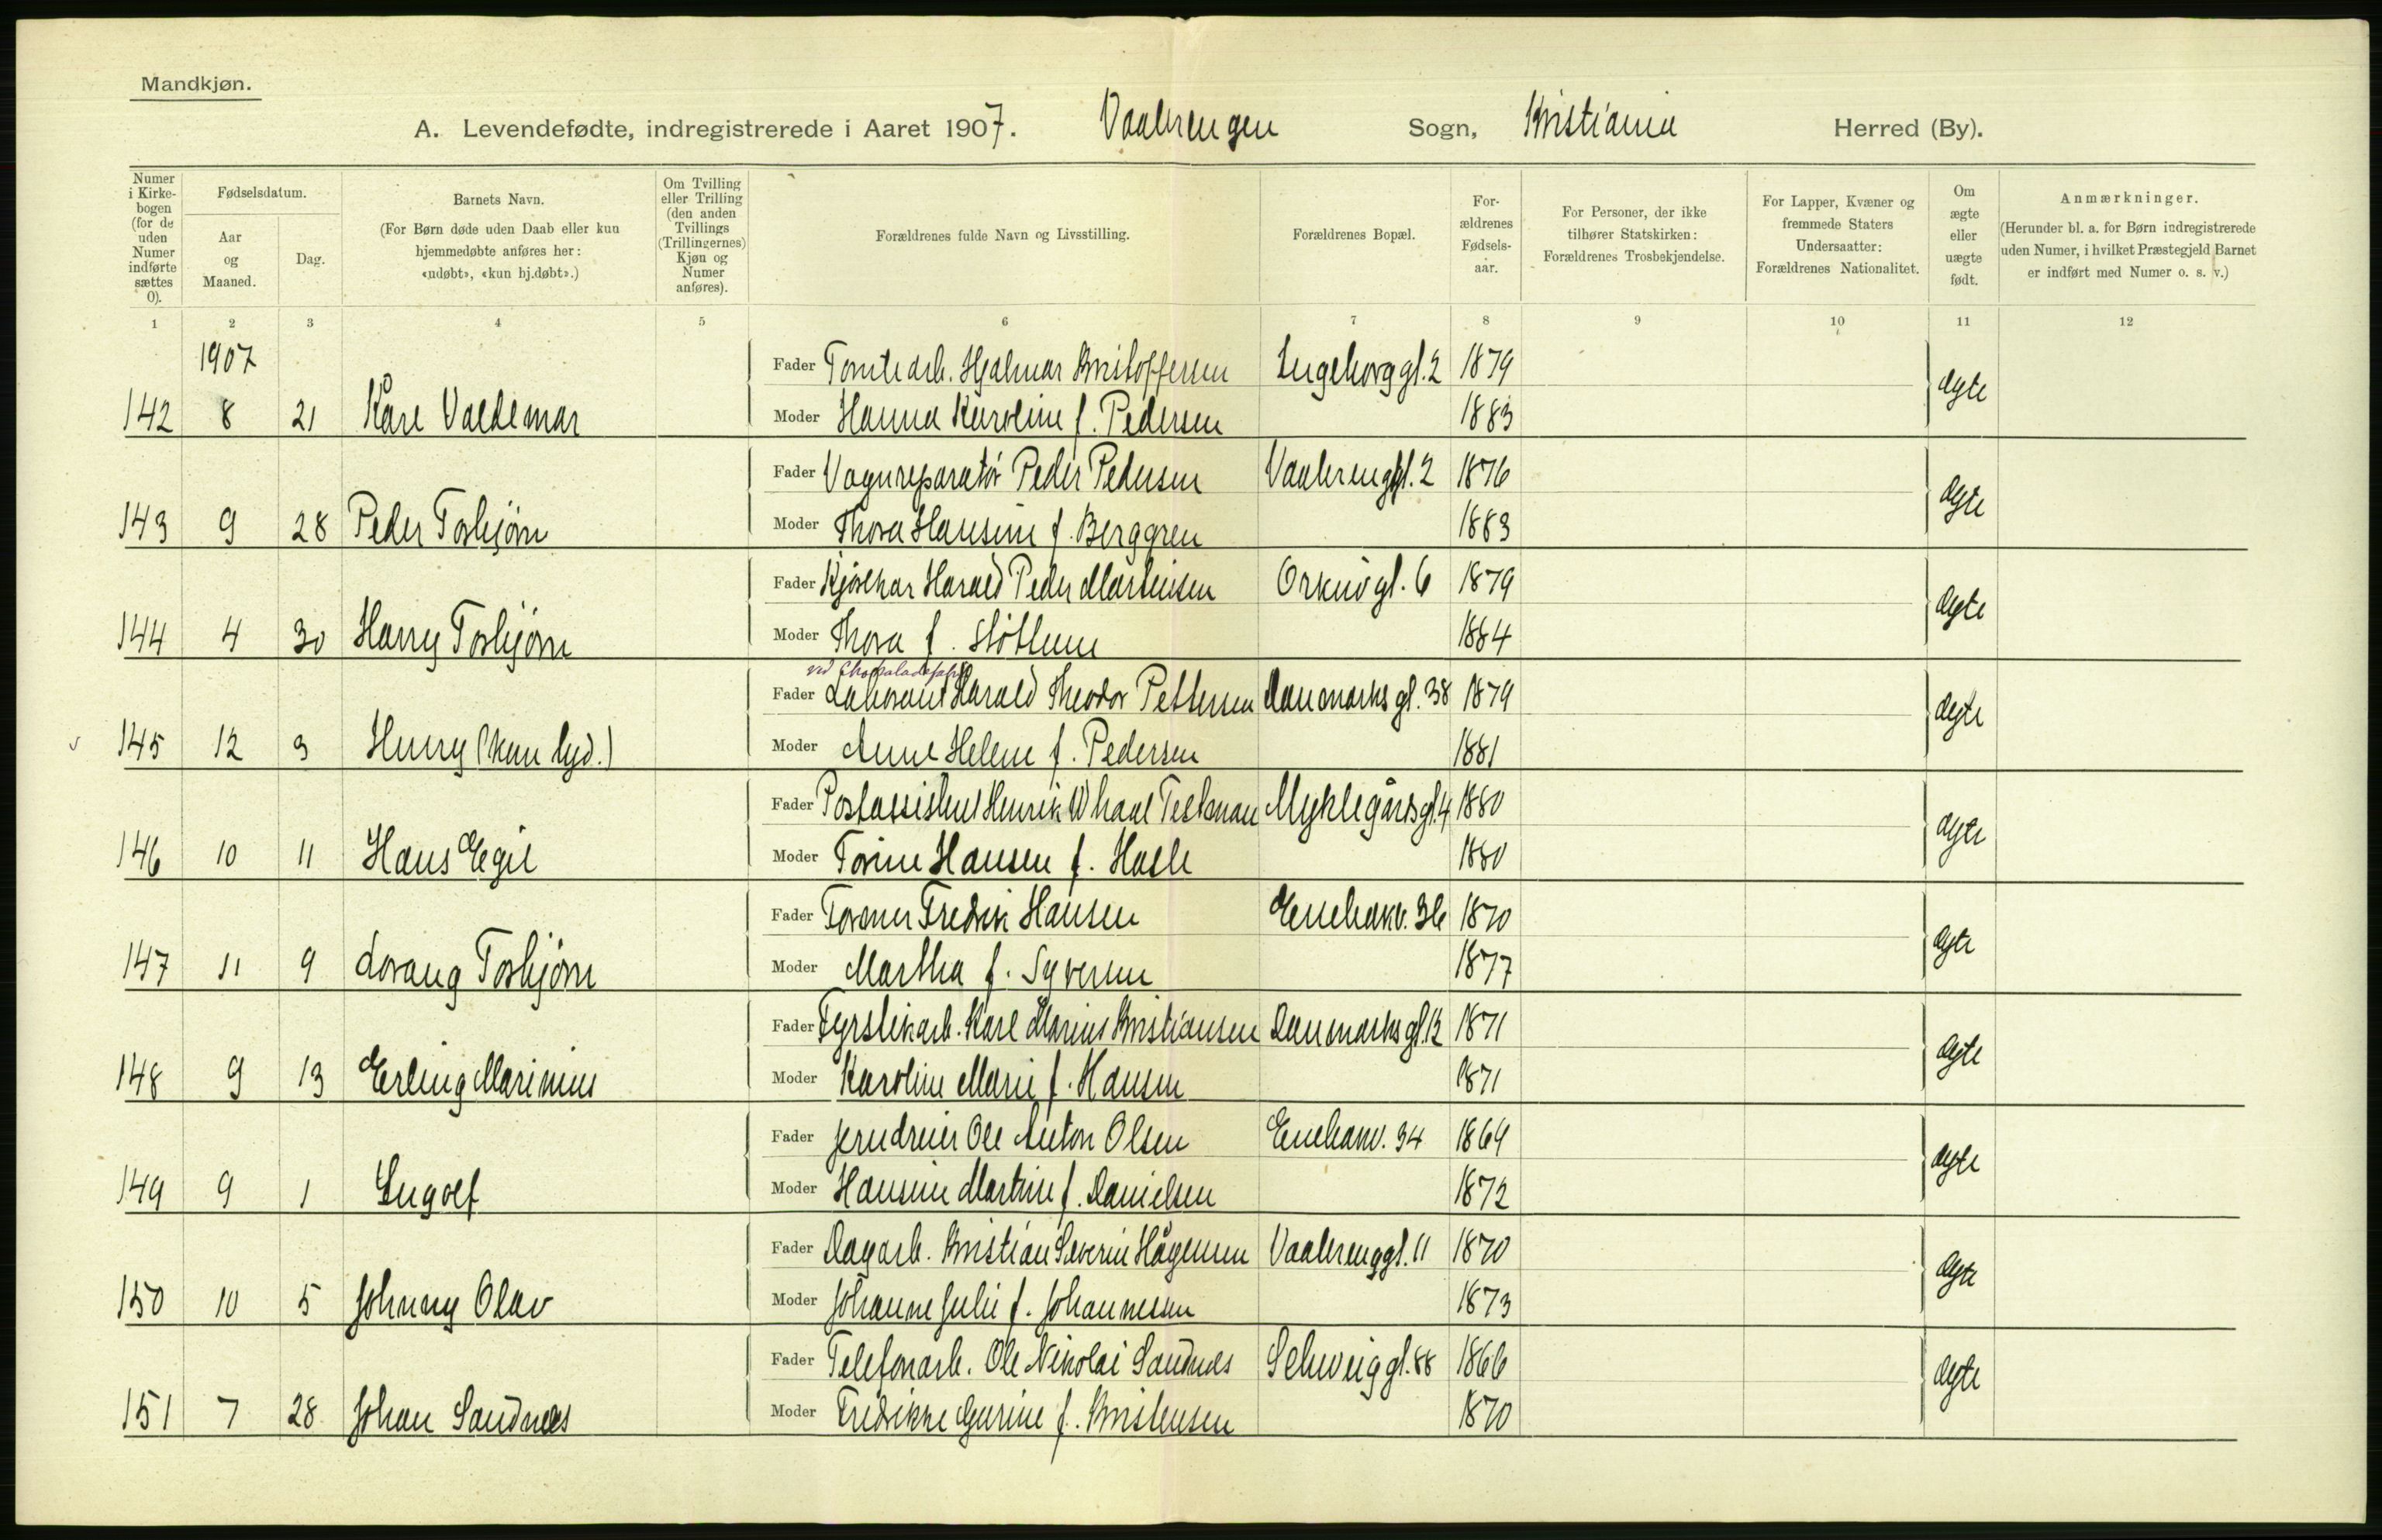 Mandkjøn.
A. Levendefødte, indregistrerede i Aaret 1907. Vaalerengen Sogn, Kristiania Herred (By).
Numer i Kirkebogen (for de uden Numer indførte sættes 0).
Fødselsdatum.
Aar og Maaned.
Dag.
Barnets Navn.
(For Børn døde uden Daab eller kun hjemmedøbte anføres her: «udøbt», «kun hj.døbt».)
Om Tvilling eller Trilling (den anden Tvillings (Trillingernes) Kjøn og Numer anføres).
Forældrenes fulde Navn og Livsstilling.
Forældrenes Bopæl.
Forældrenes Fødselsaar.
For Personer, der ikke tilhører Statskirken: Forældrenes Trosbekjendelse.
For Lapper, Kvæner og fremmede Staters Undersaatter: Forældrenes Nationalitet.
Om ægte eller uægte født.
Anmærkninger.
(Herunder bl. a. for Børn indregistrerede uden Numer, i hvilket Præstegjeld Barnet er indført med Numer o. s. v.)
1 2 3 4 5 6 7 8 9 10 11 12
1907
Fader Tomtearb. Hjalmar Kristoffersen Ingeborggt. 2 1879 ægte
142 8 21 Kåre Valdemar Moder Hanna Karoline f. Pedersen 1883
Fader Vognreparatør Peder Pedersen Vaalerenggt. 2 1876 ægte
143 9 28 Peder Torbjørn Moder Thora Hansine f. Berggren 1883
Fader Kjørekar Harald Peder Martinsen Orknøgt. 6 1879 ægte
144 4 30 Harry Torbjørn Moder Thora f. Støtlum 1884
ved Chokoladefabr.
Fader Laborant Harald Theodor Pettersen Danmarksgt. 38 1879 ægte
145 12 3 Henry (kun hjd.) Moder Anne Helene f. Pedersen 1881
Fader Postassistent Henrik Teekman Myklegårdsgt. 4 1880 ægte
146 10 11 Hans Egil Moder Torine Hansen f. Hasle 1880
Fader Former Fredrik Hansen Enebakv. 36 1870 ægte
147 11 9 Lorang Torbjørn Moder Martha f. Syversen 1877
Fader Fyrstikarb. Karl Marius Kristiansen Danmarksgt. 12 1871 ægte
148 9 13 Erling Marinius Moder Karoline Marie f. Hansen 1871
Fader Jerndreier Ole Anton Olsen Enebakv. 34 1864 ægte
149 9 1 Ingolf Moder Hansine Martine f. Danielsen 1872
Fader Dagarb. Kristian Severin Hågensen Vaalerenggt. 11 1870 ægte
150 10 5 Johnny Olav Moder Johanne Julie f. Johannessen 1873
Fader Telefonarb. Ole Nikolai Sandnæs Schweiggt. 88 1866 ægte
151 7 28 Johan Sandnæs Moder Fredrikke Gurine f. Kristensen 1870